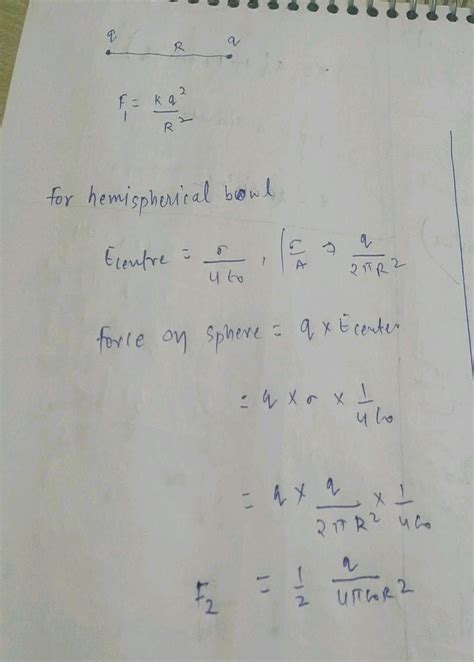 q R q
F₁ = Kq²/R²
for hemispherical bowl
Ecentre = σ/4ε₀ , | σ/A → q/2πR²
force on sphere = q × Ecenter
= q × σ × 1/4ε₀
= q × q/2πR² × 1/4ε₀
F₂ = 1/2 q/4πε₀R²